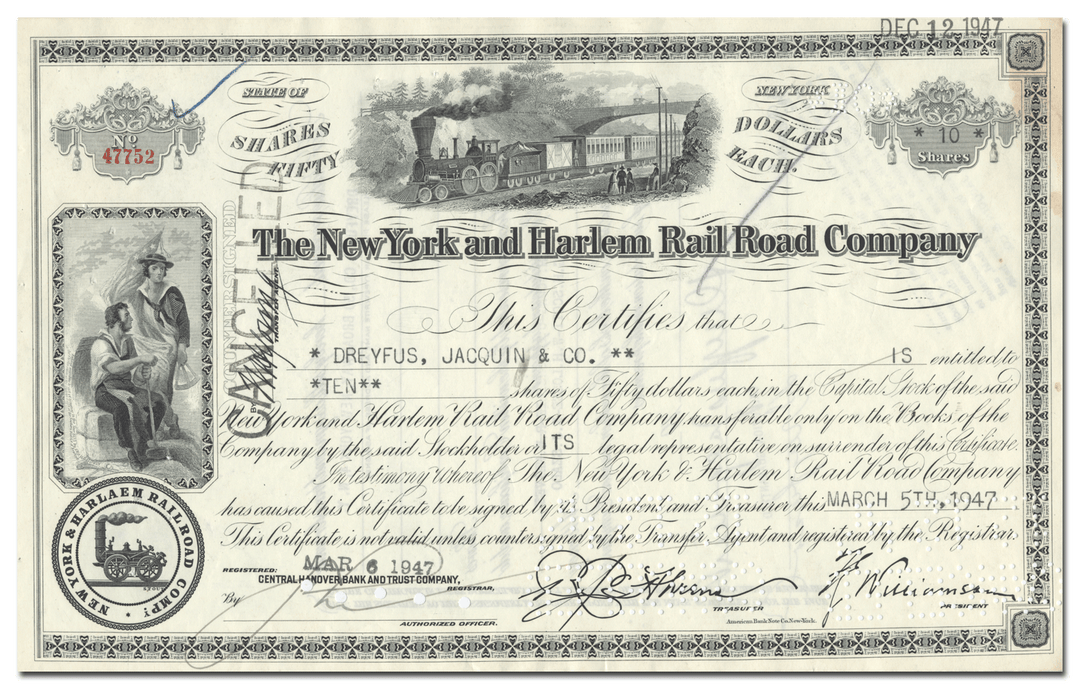 DEC 12 1947
STATE OF
NEW YORK
No
47752
SHARES
FIFTY
DOLLARS
EACH.
* 10 *
Shares
COUNTERSIGNED
CANCELLED
TRANSFER AGENT
The New York and Harlem Rail Road Company
This Certifies that
* DREYFUS, JACQUIN & CO. ** IS entitled to
*TEN** shares of Fifty dollars each, in the Capital Stock of the said
New York and Harlem Rail Road Company, transferable only on the Books of the
Company by the said Stockholder or ITS legal representative, on surrender of this Certificate.
In testimony whereof, The New York & Harlem Rail Road Company
has caused this Certificate to be signed by its President and Treasurer this MARCH 5TH, 1947
This Certificate is not valid unless countersigned by the Transfer Agent and registered by the Registrar.
NEW YORK & HARLAEM RAILROAD COMPY
REGISTERED: MAR 6 1947
CENTRAL HANOVER BANK AND TRUST COMPANY,
REGISTRAR,
By
AUTHORIZED OFFICER.
TREASURER
Williamson
PRESIDENT
American Bank Note Co. New-York.